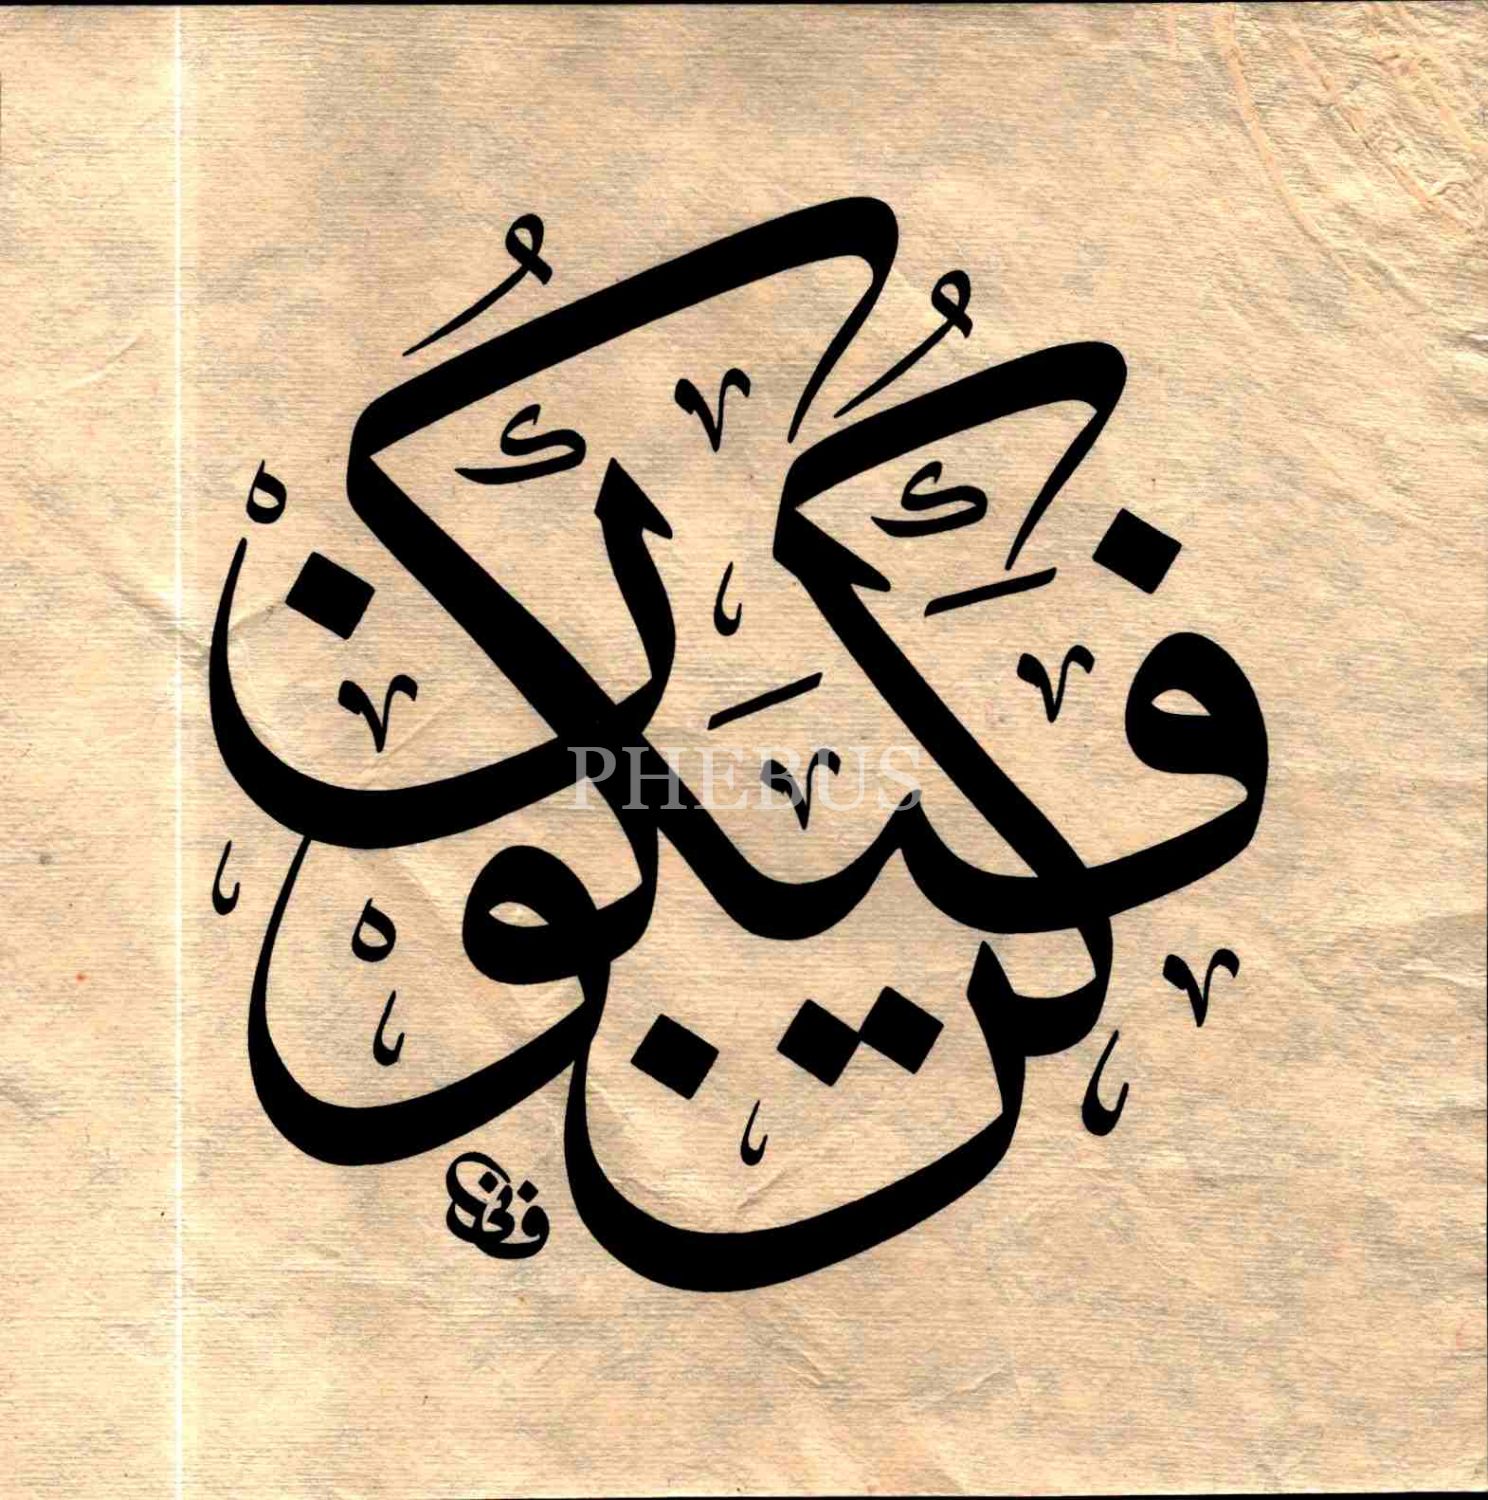 كُنْ فَيَكُونْ
PHEBUS